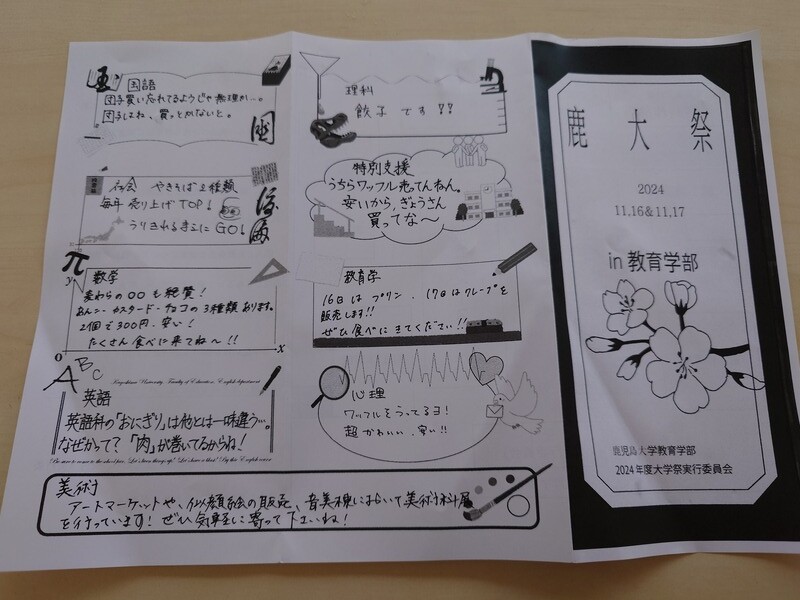 国語
団子買い忘れてるようじゃ無理か…。
団子はね、買っとかないと。
国
社会 やきそば2種類
毎年売り上げTOP!
うりきれるまえにGO!
π
y
数学
麦わらの○○も絶賛!
あんこ・カスタード・チョコの3種類あります。
2個で300円.安い!
たくさん食べに来てね〜!!
0
x
ABC
Kagoshima University Faculty of Education English department
英語
英語科の「おにぎり」は他とは一味違う…。
なぜかって?「肉」が巻いてるからね!
美術
アートマーケットや、似顔絵の販売、音美棟において美術科展
を行っています!ぜひ気軽に寄って下さいね!
理科
餃子です??
特別支援
うちらワッフル売ってんねん。
安いから、ぎょうさん
買ってな〜
教育学
16日はプリン、17日はクレープを
販売します!!
ぜひ食べにきてください!!
心理
ワッフルをうってるヨ!
超かわいい、安い!!
鹿大祭
2024
11.16&11.17
in 教育学部
鹿児島大学教育学部
2024年度大学祭実行委員会